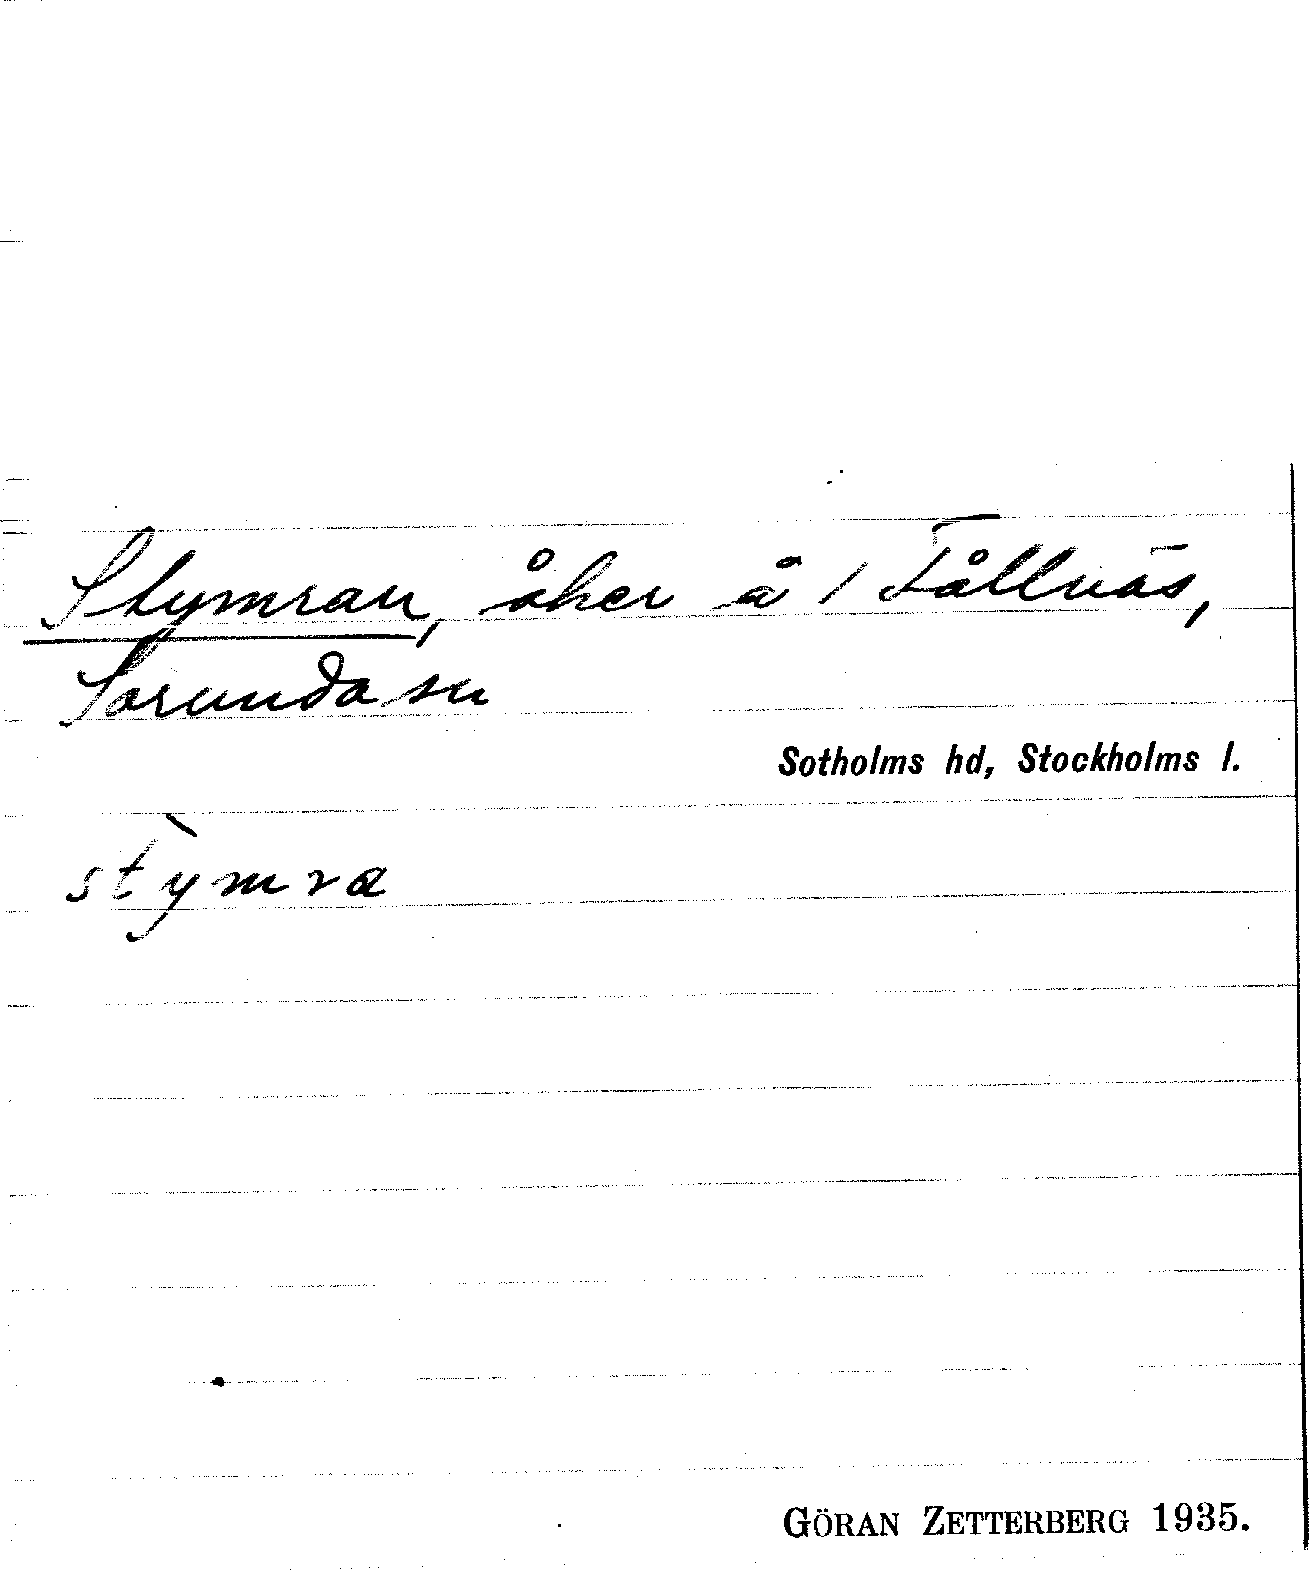 Stymran, åker å 1 Fållnäs,
Sorunda sn
Sotholms hd, Stockholms l.
stỳmra
GÖRAN ZETTERBERG 1935.